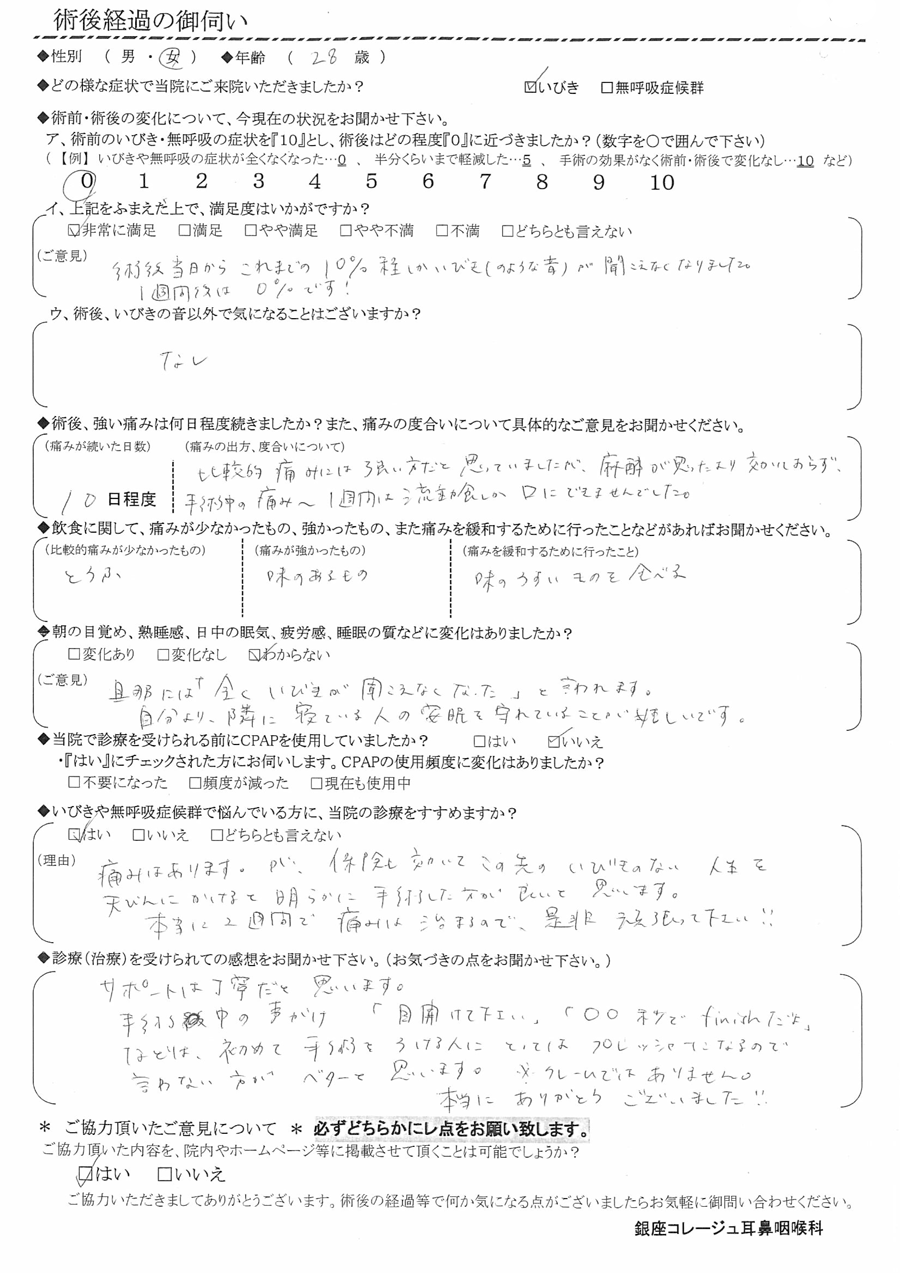 術後経過の御伺い
◆性別 （ 男 ・ 女 ） ◆年齢 （ 28 歳 ）
◆どの様な症状で当院にご来院いただきましたか？ ☑いびき □無呼吸症候群
◆術前・術後の変化について、今現在の状況をお聞かせ下さい。
ア、術前のいびき・無呼吸の症状を『10』とし、術後はどの程度『0』に近づきましたか？（数字を〇で囲んで下さい）
（ 【例】 いびきや無呼吸の症状が全くなくなった…0 、 半分くらいまで軽減した…5 、 手術の効果がなく術前・術後で変化なし…10 など）
0 1 2 3 4 5 6 7 8 9 10
イ、上記をふまえた上で、満足度はいかがですか？
☑非常に満足 □満足 □やや満足 □やや不満 □不満 □どちらとも言えない
（ご意見） 術後当日から これまでの 10％ 程しかいびき(のような音)が 聞こえなくなりました。
1週間後は 0％です！
ウ、術後、いびきの音以外で気になることはございますか？
なし
◆術後、強い痛みは何日程度続きましたか？また、痛みの度合いについて具体的なご意見をお聞かせください。
（痛みが続いた日数） （痛みの出方、度合いについて）
比較的 痛みには強い方だと思っていましたが、麻酔が思ったより効いておらず、
10 日程度 手術中の痛み〜1週間は流動食しか口にできませんでした。
◆飲食に関して、痛みが少なかったもの、強かったもの、また痛みを緩和するために行ったことなどがあればお聞かせください。
（比較的痛みが少なかったもの） （痛みが強かったもの） （痛みを緩和するために行ったこと）
とうふ 味のあるもの 味のうすいものを食べる
◆朝の目覚め、熟睡感、日中の眠気、疲労感、睡眠の質などに変化はありましたか？
□変化あり □変化なし ☑わからない
（ご意見） 旦那には「全くいびきが聞こえなくなった」と言われます。
自分より、隣に寝ている人の安眠を守れていることが嬉しいです。
◆当院で診療を受けられる前にCPAPを使用していましたか？ □はい ☑いいえ
・『はい』にチェックされた方にお伺いします。CPAPの使用頻度に変化はありましたか？
□不要になった □頻度が減った □現在も使用中
◆いびきや無呼吸症候群で悩んでいる方に、当院の診療をすすめますか？
☑はい □いいえ □どちらとも言えない
（理由） 痛みはあります。が、保険も効いてこの先のいびきのない 人生を
天びんにかけると明らかに手術した方が良いと思います。
本当に2週間で 痛みは治まるので、是非 頑張って下さい!!
◆診療（治療）を受けられての感想をお聞かせ下さい。（お気づきの点をお聞かせ下さい。）
サポートは丁寧だと思います。
手術中の声がけ 「目開けて下さい」「〇〇秒でfinishだよ」
などは、初めて手術をうける人にとってはプレッシャーになるので
言わない方が ベターと思います。※クレームではありません。
本当に ありがとう ございました!!
＊ ご協力頂いたご意見について ＊ 必ずどちらかにレ点をお願い致します。
ご協力頂いた内容を、院内やホームページ等に掲載させて頂くことは可能でしょうか？
☑はい □いいえ
ご協力いただきましてありがとうございます。術後の経過等で何か気になる点がございましたらお気軽に御問い合わせください。
銀座コレージュ耳鼻咽喉科